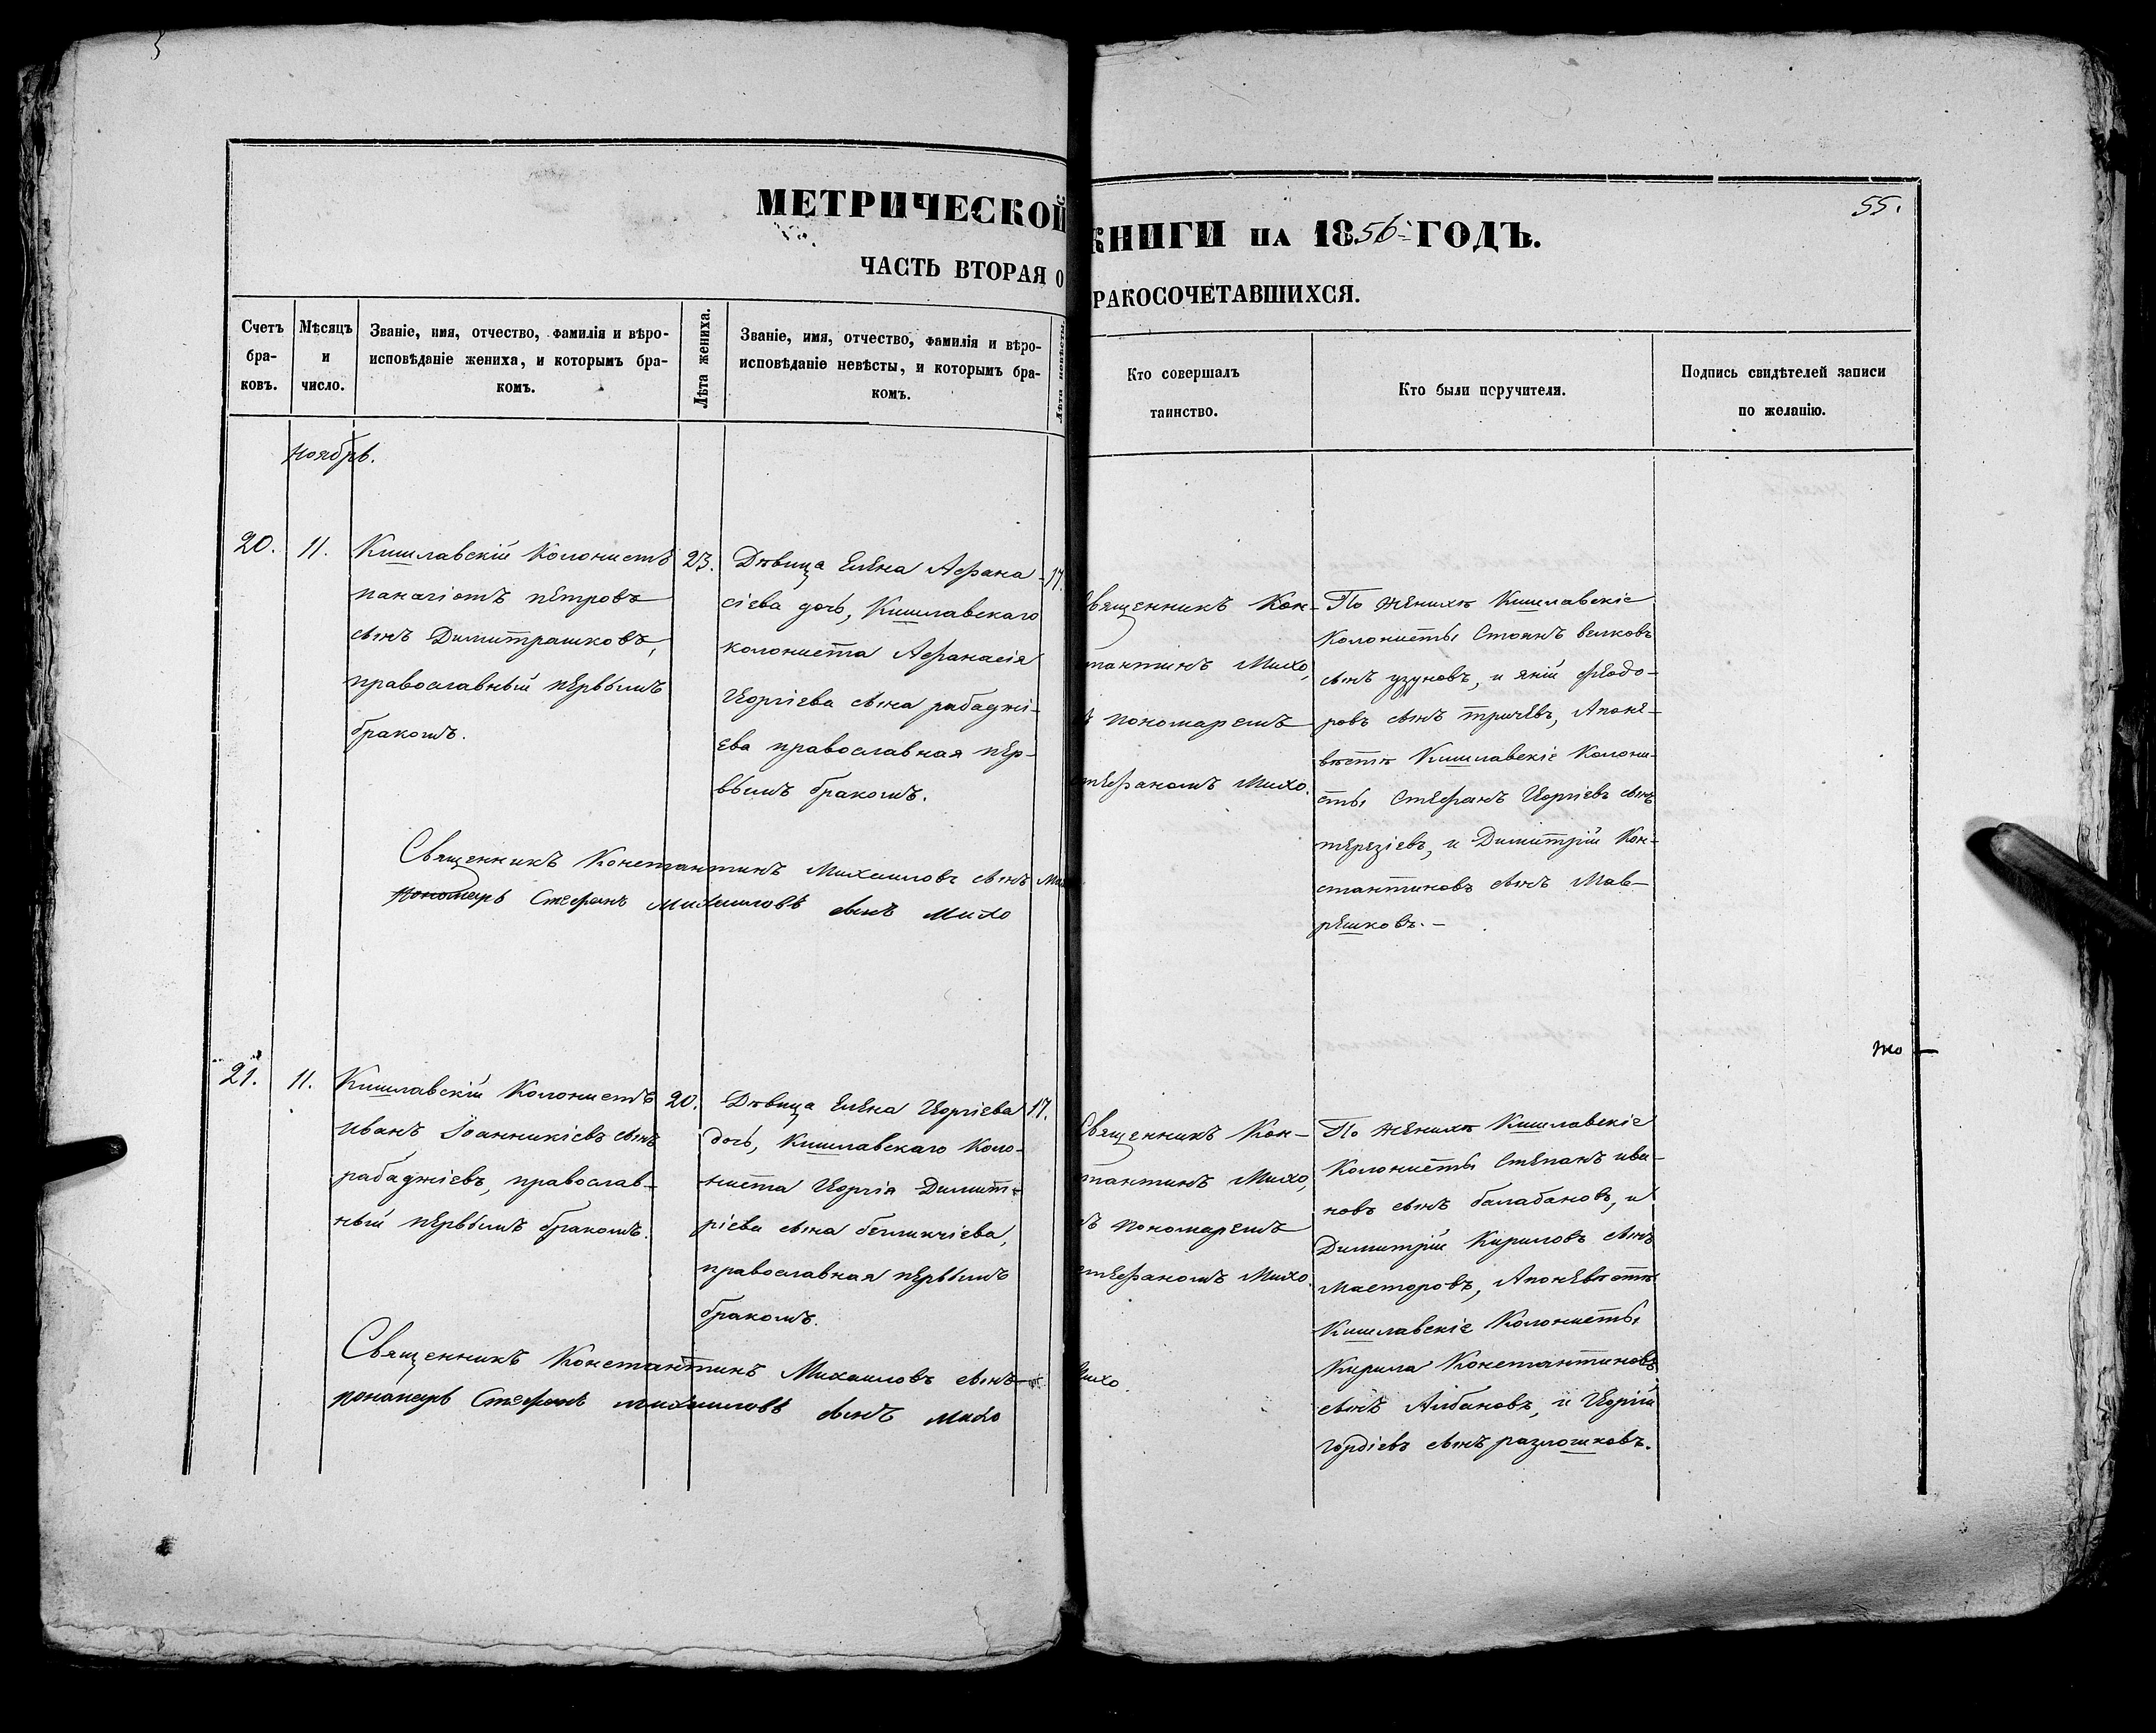 55.
МЕТРИЧЕСКОЙ КНИГИ НА 1856 ГОДЪ.
ЧАСТЬ ВТОРАЯ О РАКОСОЧЕТАВШИХСЯ.
Счетъ бра-
ковъ.
Мѣсяцъ
и
число.
Званіе, имя, отчество, фамилія и вѣро-
исповѣданіе жениха, и которымъ бра-
комъ.
Лѣта жениха.
Званіе, имя, отчество, фамилія и вѣро-
исповѣданіе невѣсты, и которымъ бра-
комъ.
Лѣта невѣсты.
Кто совершалъ
таинство.
Кто были поручители.
Подпись свидѣтелей записи
по желанію.
Ноябрь.
20.
11.
Кишлавскій Колонистъ
панаіотъ петровъ
сынъ Димитрашковъ,
православный первымъ
бракомъ.
23.
Дѣвица Елена Афана-
сіева дочь, Кишлавскаго
колониста Афанасія
Георгіева сына рабаджі-
ева православная пер-
вымъ бракомъ.
17.
Священникъ Кон-
стантинъ Михо,
съ пономаремъ
стефаномъ Михо.
По женихѣ Кишлавскіе
Колонисты Стоянъ велковъ
сынъ узуновъ, и яній феодо-
ровъ сынъ тричевъ, Апоне-
вѣстѣ Кишлавскіе Колони-
сты Стефанъ Георгіевъ сынъ
терзіевъ, и Димитрій Кон-
стантиновъ сынъ Мав-
решковъ.-
Священникъ Константинъ Михаиловъ сынъ
пономарь Стефанъ михаиловъ сынъ михо
21.
11.
Кишлавскій Колонистъ
иванъ Іоанникіевъ сынъ
рабаджіевъ, православ-
ный первымъ бракомъ.
20.
Дѣвица Елена Георгіева
дочь, Кишлавскаго Коло-
ниста Георгія Димит-
ріева сына бешикчіева,
православная первымъ
бракомъ.
17.
Священникъ Кон-
стантинъ Михо,
съ пономаремъ
стефаномъ Михо.
По женихѣ Кишлавскіе
Колонисты Степанъ ива-
новъ сынъ балабановъ, и
Димитрій Кириловъ сынъ
Масторовъ, Апоневѣстѣ
Кишлавскіе Колонисты
Кирила Константиновъ
сынъ Албановъ, и Георгій
гордіевъ сынъ разлошковъ.
Священникъ Константинъ Михаиловъ сынъ Михо.
пономарь Стефанъ михаиловъ сынъ михо